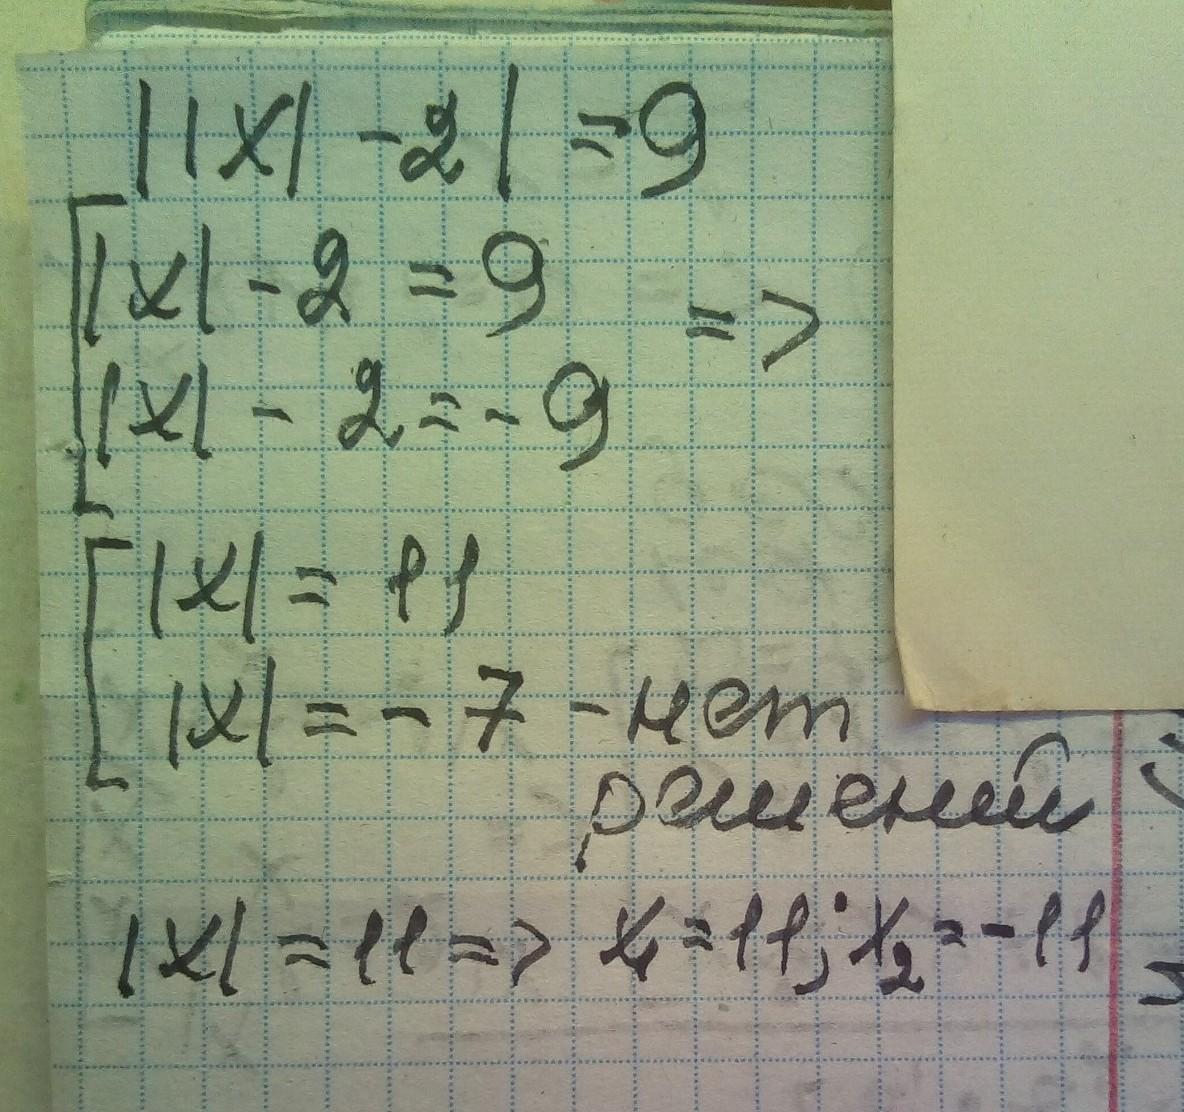 ||x| - 2| = 9
|x| - 2 = 9 =>
|x| - 2 = - 9
|x| = 11
|x| = - 7 - нет
решений
|x| = 11 => x₁ = 11; x₂ = -11